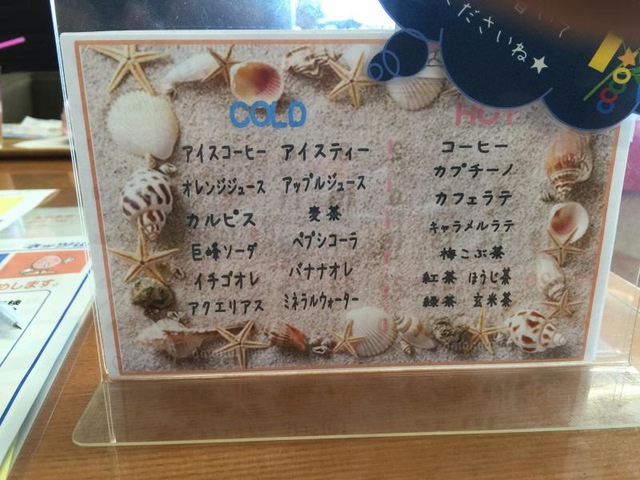 ください​ね★
COLD
アイスコーヒー アイスティー
オレンジジュース アップルジュース
カルピス 麦茶
巨峰ソーダ ペプシコーラ
イチゴオレ バナナオレ
アクエリアス ミネラルウォーター
HOT
コーヒー
カプチーノ
カフェラテ
キャラメルラテ
梅こぶ茶
紅茶 ほうじ茶
緑茶 玄米茶